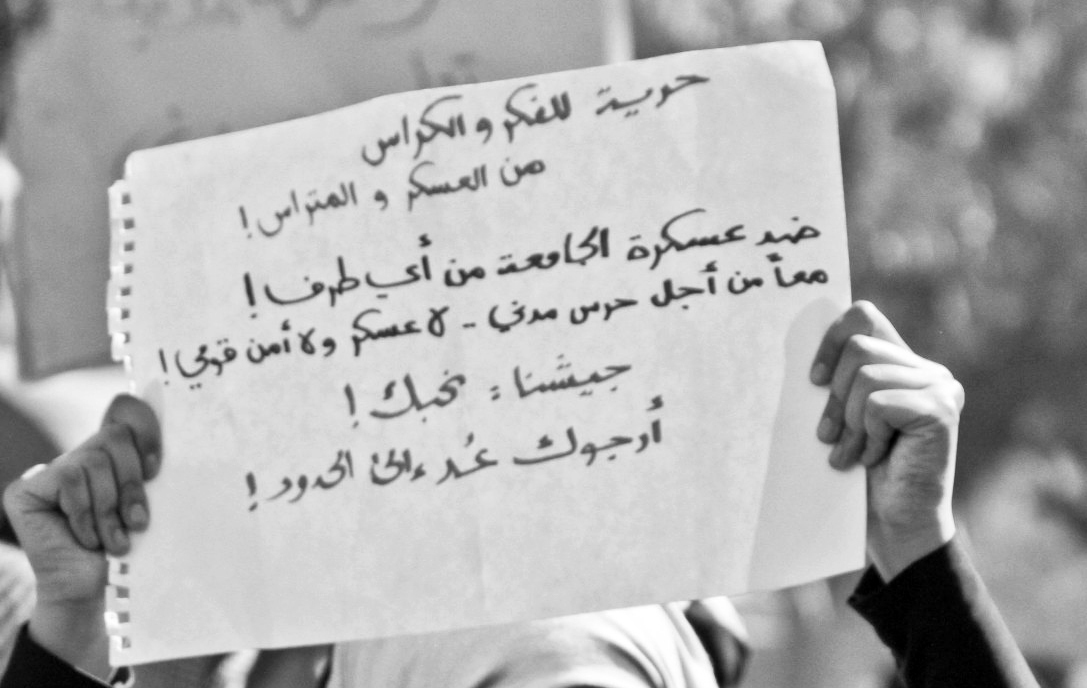 حرية للفكر و الكراس
من العسكر و المتراس!
ضد عسكرة الجامعة من أي طرف!
معاً من أجل حرس مدني - لا عسكر ولا أمن قومي!
جيشنا: نحبك!
أرجوك عُد إلى الحدود!